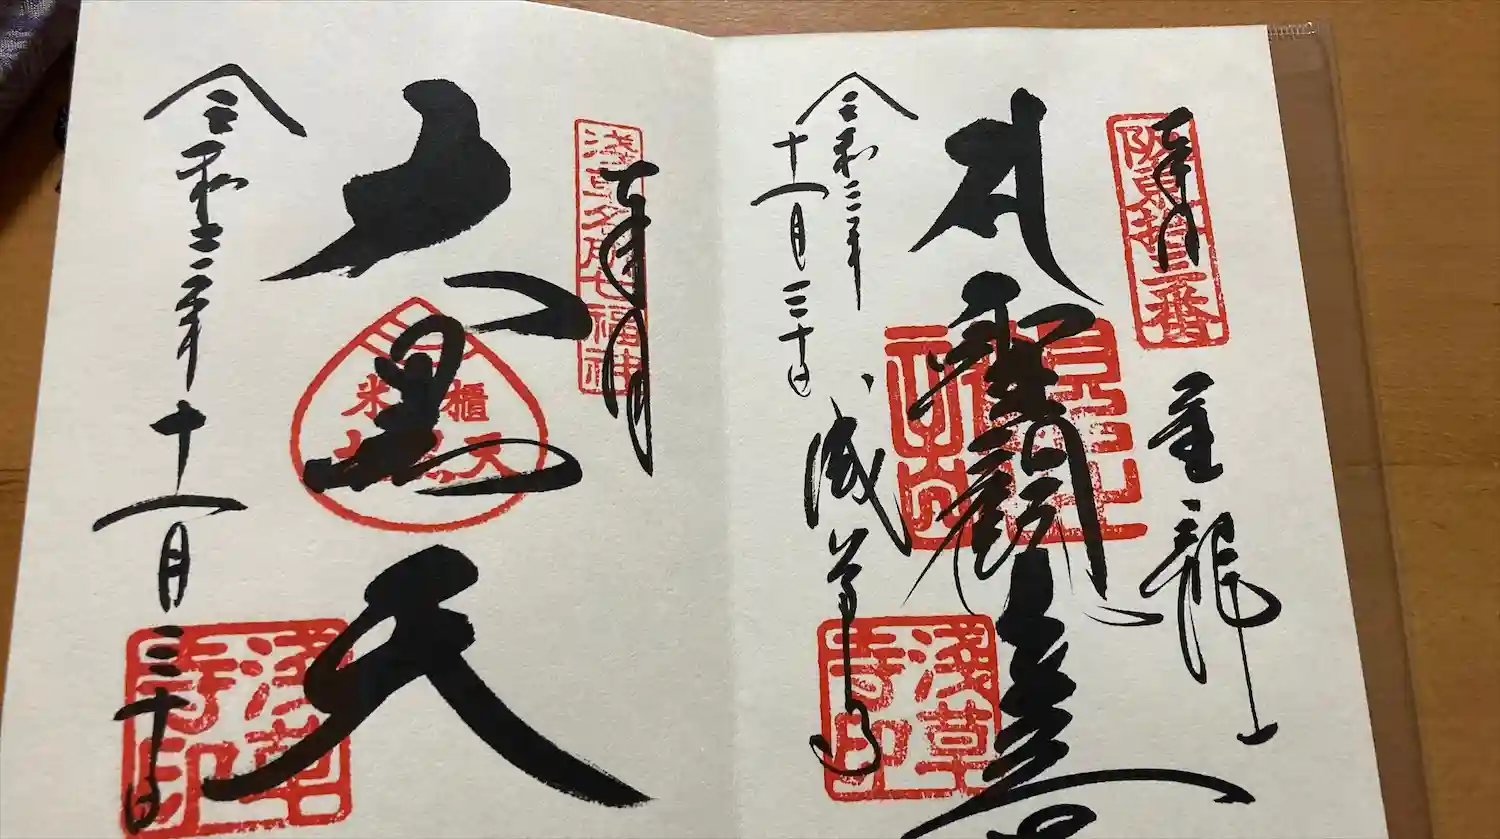 阪東拾三番
奉拝
金龍山
聖観世音
令和二年
十一月三十日
浅草寺
淺草寺印
淺草名所七福神
奉拝
大黒天
米櫃
大黒天
令和二年十一月三十日
淺草寺印